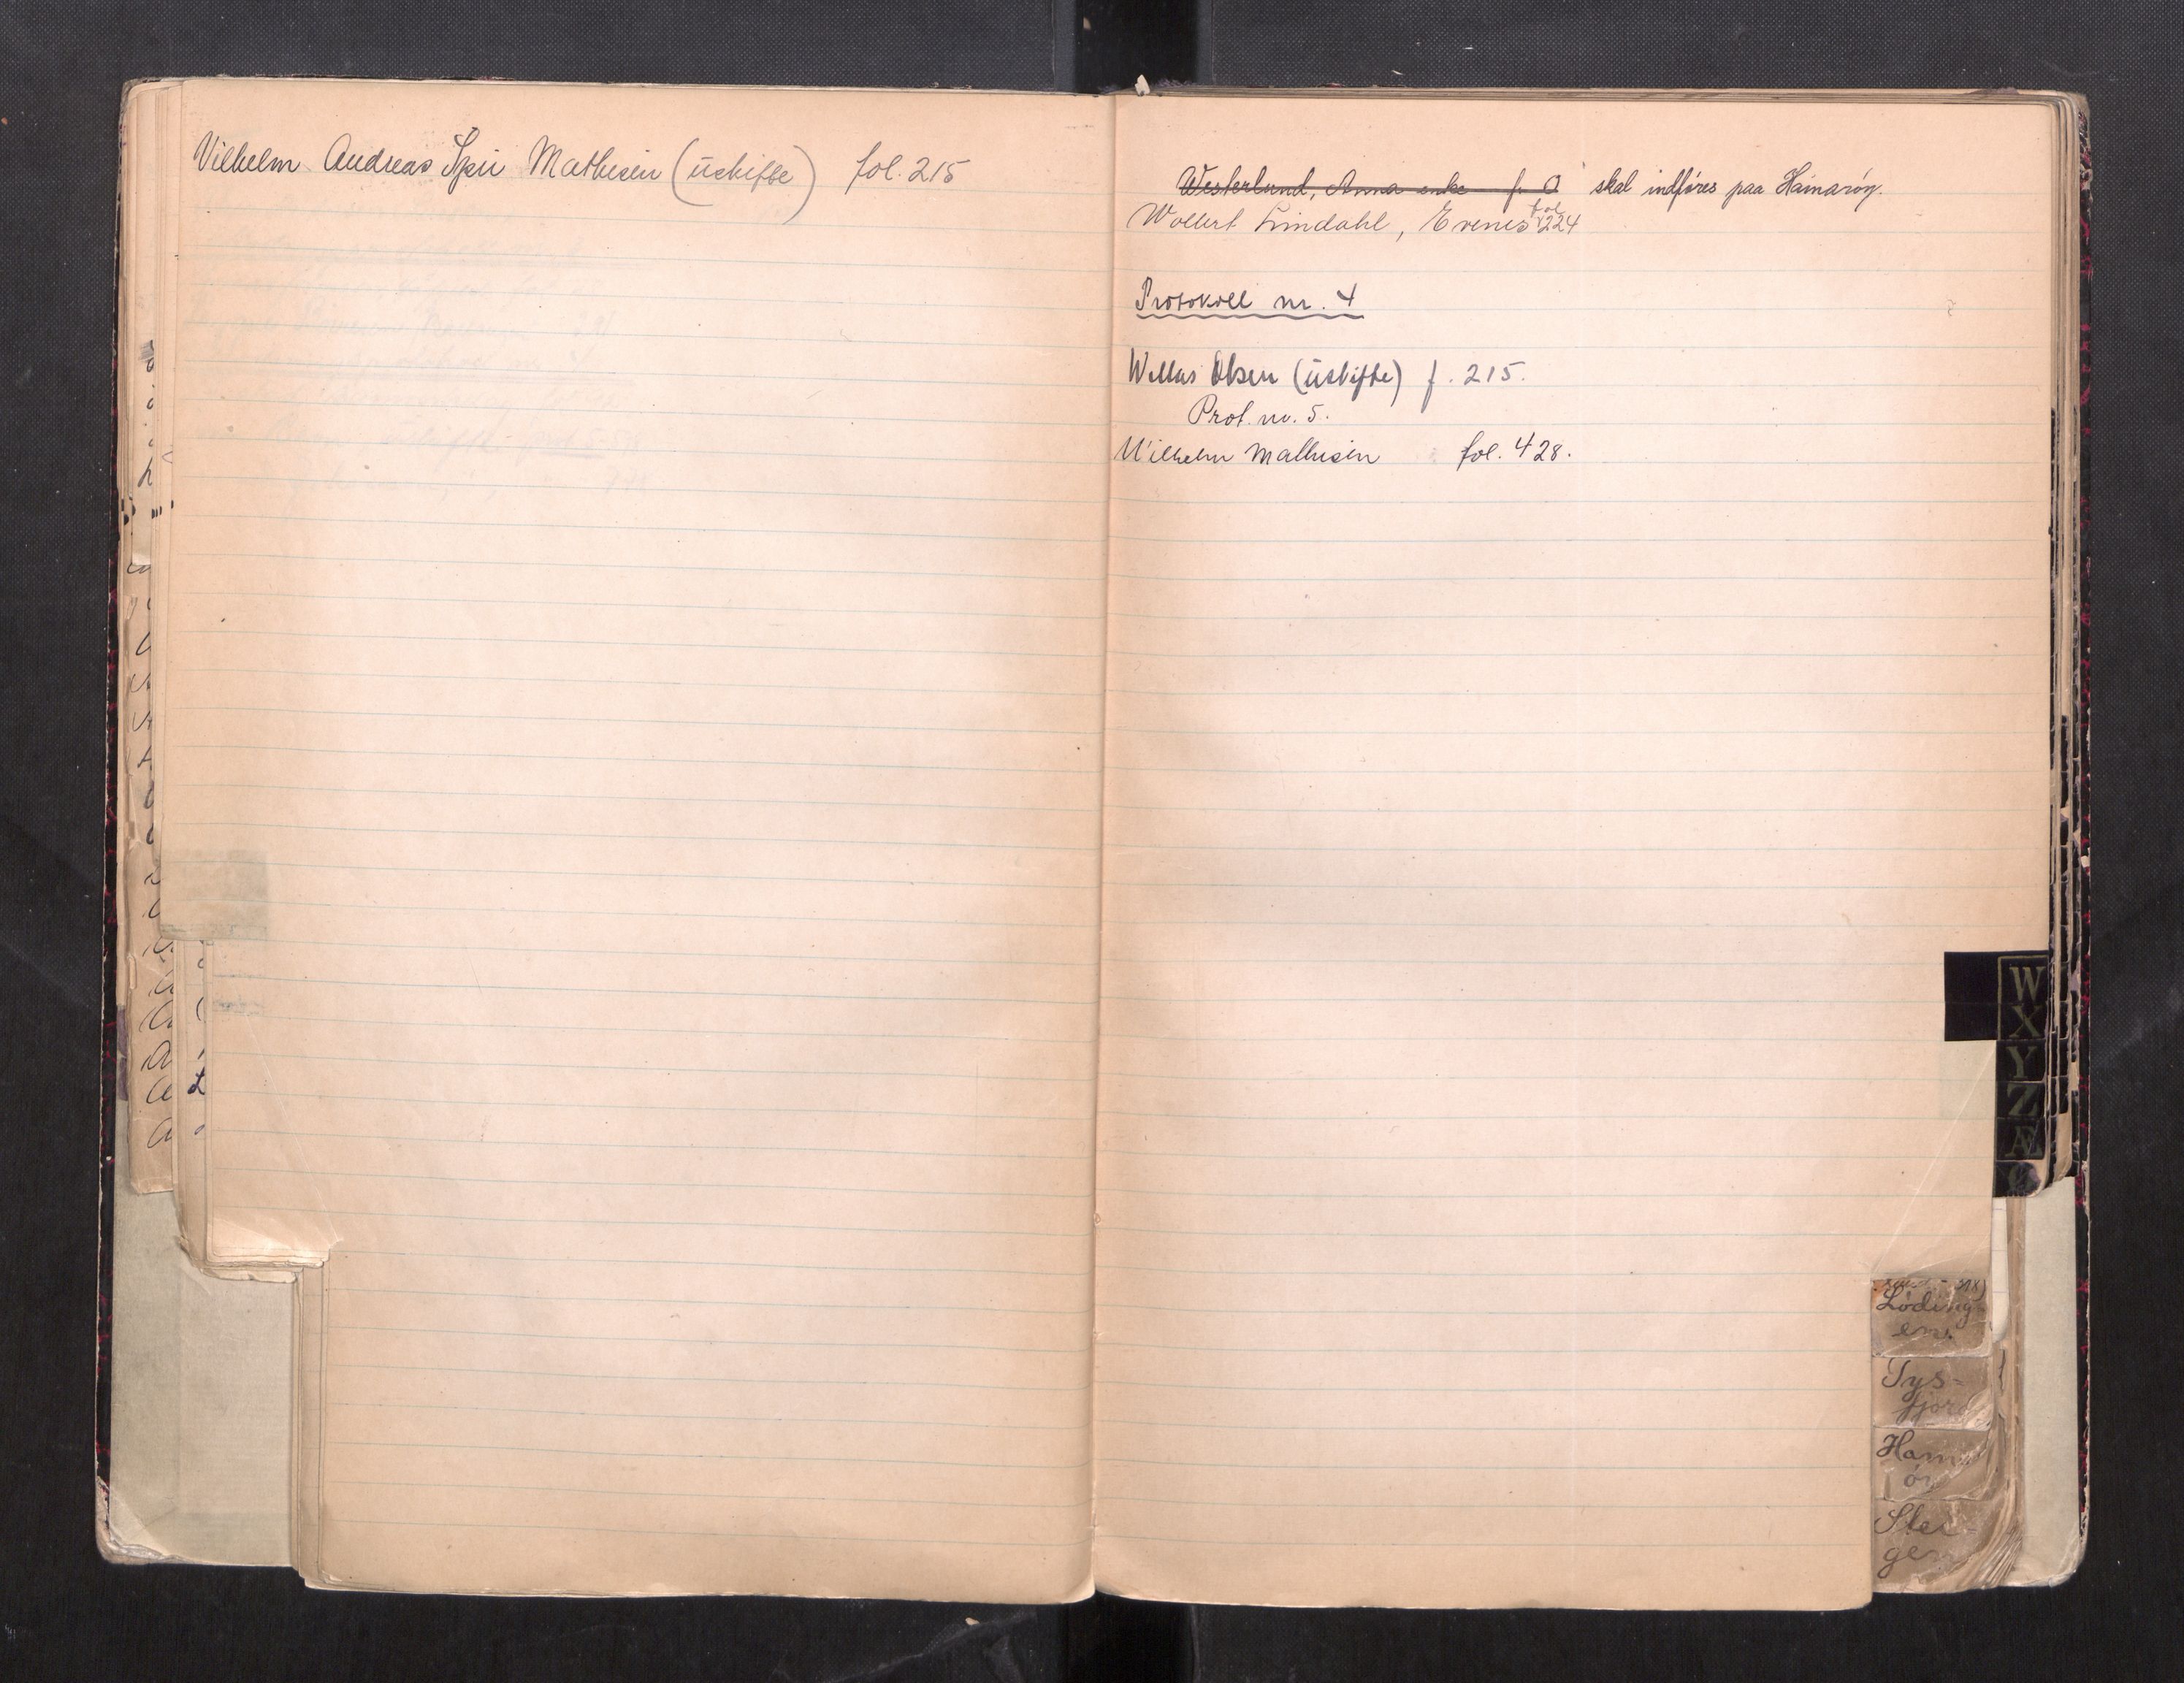 Vilhelm Andreas Mathisen (uskifte) fol. 215
Westerlund, Anna enke f. skal indføres paa Hamarøy.
Wollert Lindahl, Evenes fol 224
Protokoll nr. 4
Olsen (uskifte) f. 215.
Prot. nr. 5.
Wilhelm Mathisen fol. 428.
W
X
Y
Z
Æ
Ø
Løding
en.
Tys-
fjord
Ham
Stei-
gen